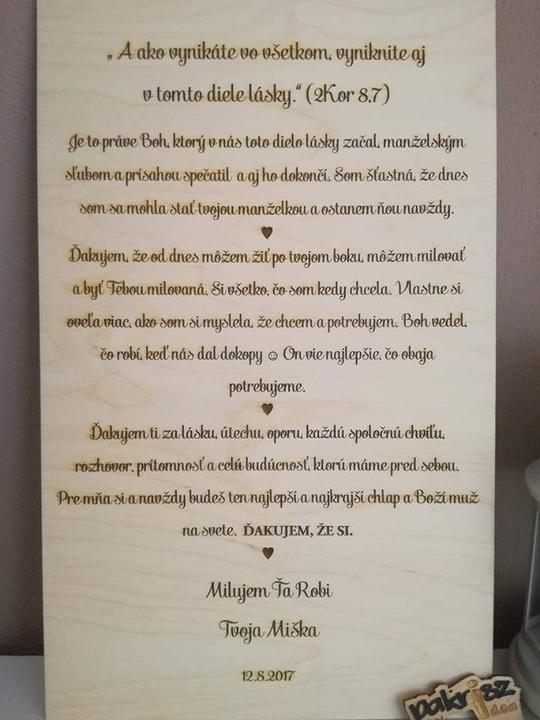 „ A ako vynikáte vo všetkom, vyniknite aj
v tomto diele lásky.“ (2Kor 8,7)
Je to práve Boh, ktorý v nás toto dielo lásky začal, manželským
sľubom a prísahou spečatil a aj ho dokončí. Som šťastná, že dnes
som sa mohla stať tvojou manželkou a ostanem ňou navždy.
Ďakujem, že od dnes môžem žiť po tvojom boku, môžem milovať
a byť Tebou milovaná. Si všetko, čo som kedy chcela. Vlastne si
oveľa viac, ako som si myslela, že chcem a potrebujem. Boh vedel,
čo robí, keď nás dal dokopy ☺ On vie najlepšie, čo obaja
potrebujeme.
Ďakujem ti za lásku, útechu, oporu, každú spoločnú chvíľu,
rozhovor, prítomnosť a celú budúcnosť, ktorú máme pred sebou.
Pre mňa si a navždy budeš ten najlepší a najkrajší chlap a Boží muž
na svete. ĎAKUJEM, ŽE SI.
Milujem Ťa Robi
Tvoja Miška
12.8.2017
pakrisz
idea